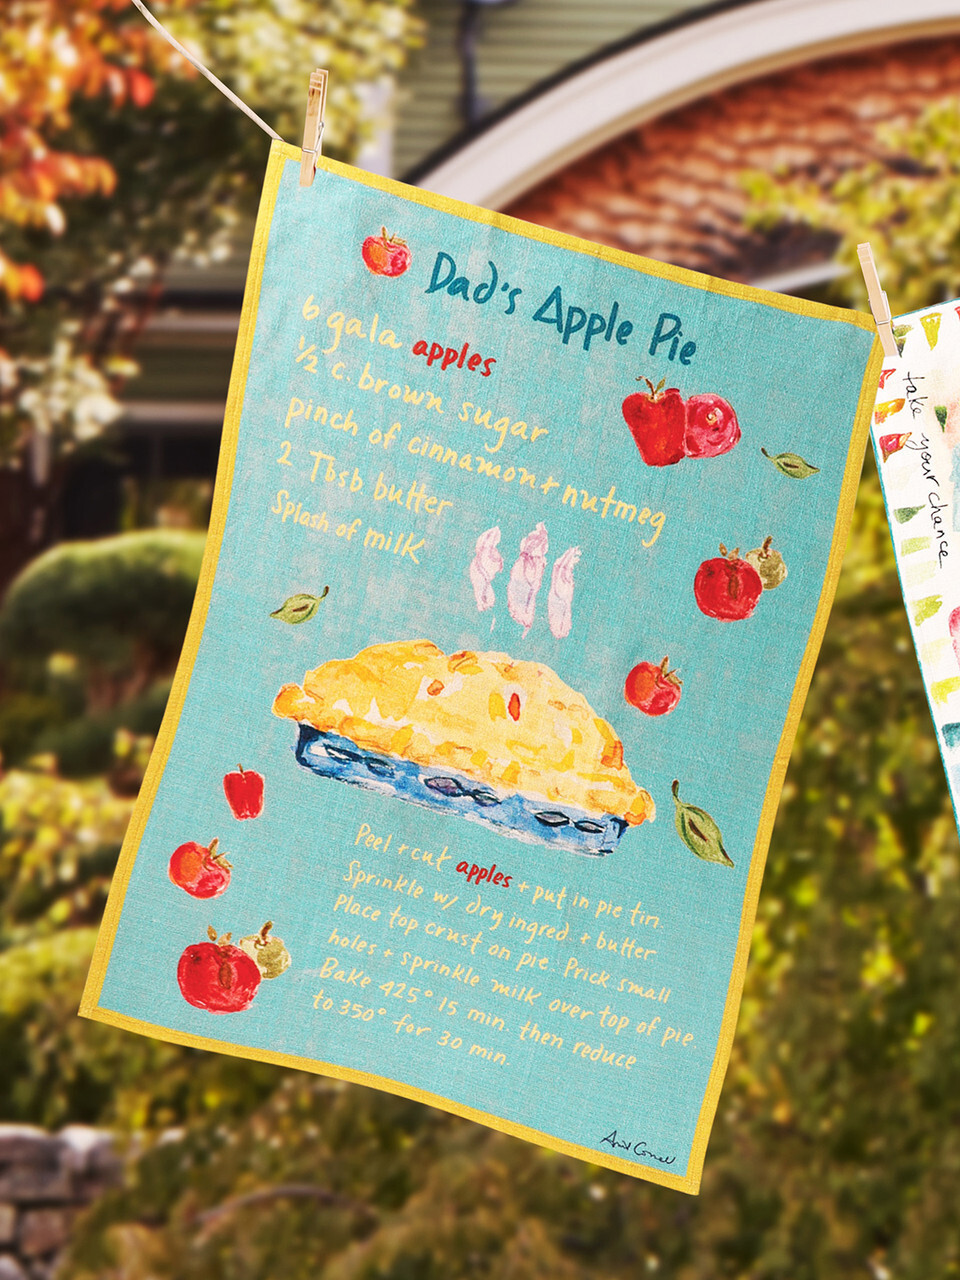 Dad's Apple Pie
6 gala apples
½ c. brown sugar
pinch of cinnamon + nutmeg
2 Tbsb butter
Splash of milk
Peel + cut apples + put in pie tin.
Sprinkle w/ dry ingred. + butter.
Place top crust on pie. Prick small
holes + sprinkle milk over top of pie.
Bake 425° 15 min. then reduce
to 350° for 30 min.
take your chance